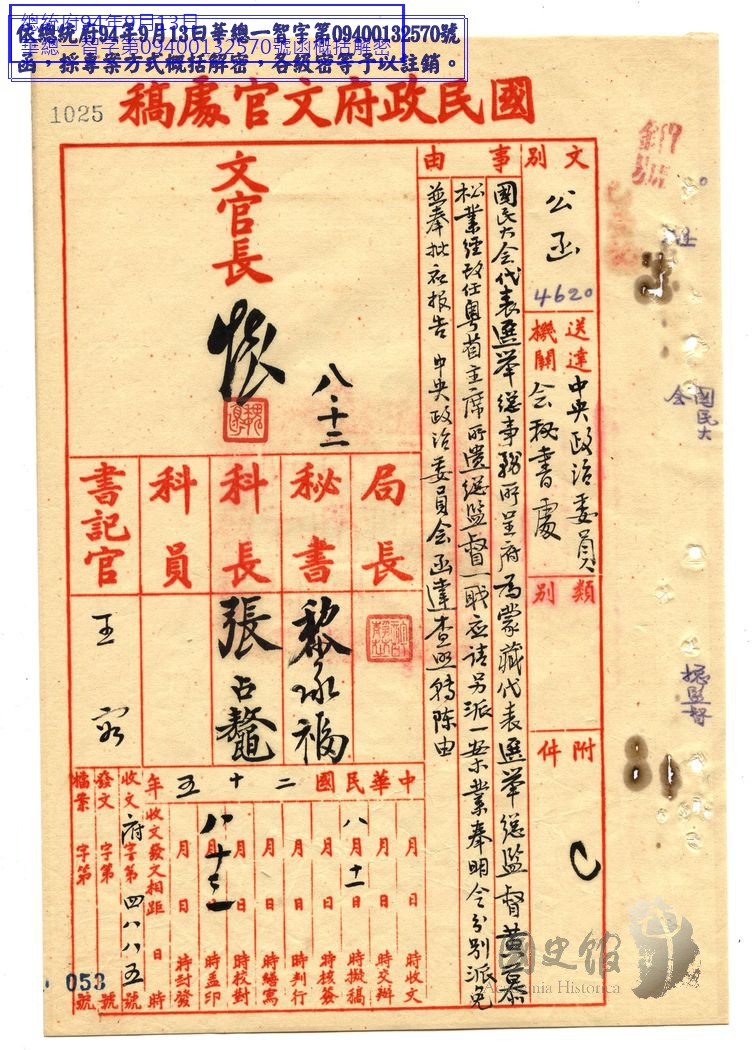 總統府94年9月13日
華總一智字第09400132570號函概括解密
依總統府94年9月13日華總一智字第09400132570號
函,採專案方式概括解密,各級密等予以註銷。
1025
國民政府文官處稿
文別
公函
4620
事由
國民大會代表選舉總事務所呈府為蒙藏代表選舉總監督黃慕
松業經改任粵省主席所遺總監督一職應請另派一案業奉明令分別派免
並奉批令報告中央政治委員會函達查照轉陳由
送達機關
中央政治委員
會秘書處
類別
附件
文官長
懷
八.十二
局長
秘書
黎承福
科長
張占鰲
科員
書記官
王
中華民國二十五年
月日時收文
月日時交辦
八月十一日時擬稿
月日時核簽
月日時判行
月日時繕寫
月日時校對
八月十二日時蓋印
月日時封發
收文發文相距日時
收文府字第四八八五號
發文字第號
檔案字第號
053
國民大
會
總監督
國史館
Academia Historica